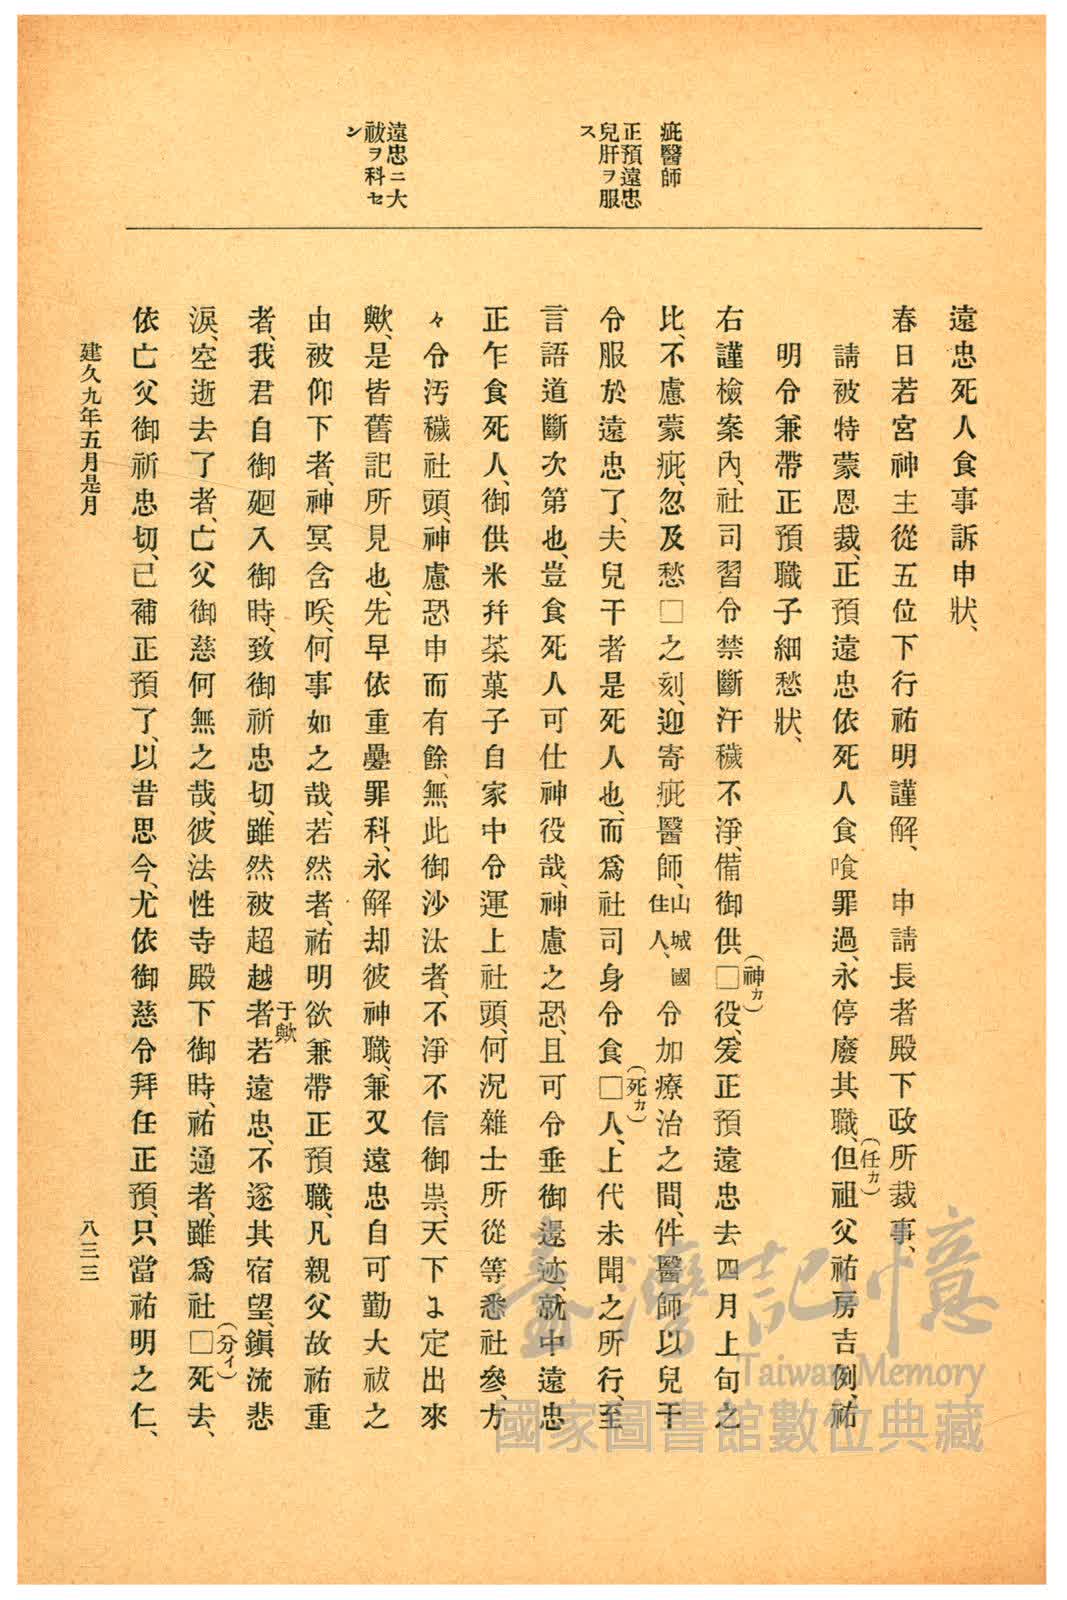 疵醫師
正預遠忠
兒肝ヲ服
ス
遠忠ニ大
祓ヲ科セ
ン
遠忠死人食事訴申狀、
春日若宮神主從五位下行祐明謹解、　申請長者殿下政所裁事、
請被特蒙恩裁、正預遠忠依死人食喰罪過、永停廢其職、但祖父祐房吉例、祐
(任カ)
明令兼帶正預職子細愁狀、
右謹檢案內、社司習令禁斷汙穢不淨、備御供□役、爰正預遠忠去四月上旬之
(神カ)
比、不慮蒙疵、忽及愁□之刻、迎寄疵醫師、山城國住人、令加療治之間、件醫師以兒干
令服於遠忠了、夫兒干者是死人也、而爲社司身令食□人、上代未聞之所行、至
(死カ)
言語道斷次第也、豈食死人可仕神役哉、神慮之恐、且可令垂御還迹、就中遠忠
正乍食死人、御供米幷菜菓子自家中令運上社頭、何況雜士所從等悉社參、方
々令汚穢社頭、神慮恐申而有餘、無此御沙汰者、不淨不信御祟、天下ﾆ定出來
歟、是皆舊記所見也、先早依重疊罪科、永解却彼神職、兼又遠忠自可勤大祓之
由被仰下者、神冥含咲、何事如之哉、若然者、祐明欲兼帶正預職、凡親父故祐重
者、我君自御廻入御時、致御祈忠切、雖然被超越者若遠忠、不遂其宿望、鎭流悲
于歟
淚、空逝去了者、亡父御慈何無之哉、彼法性寺殿下御時、祐通者、雖爲社□死去、
(分イ)
依亡父御祈忠切、已補正預了、以昔思今、尤依御慈令拜任正預、只當祐明之仁、
建久九年五月是月
八三三
臺灣記憶
Taiwan Memory
國家圖書館數位典藏